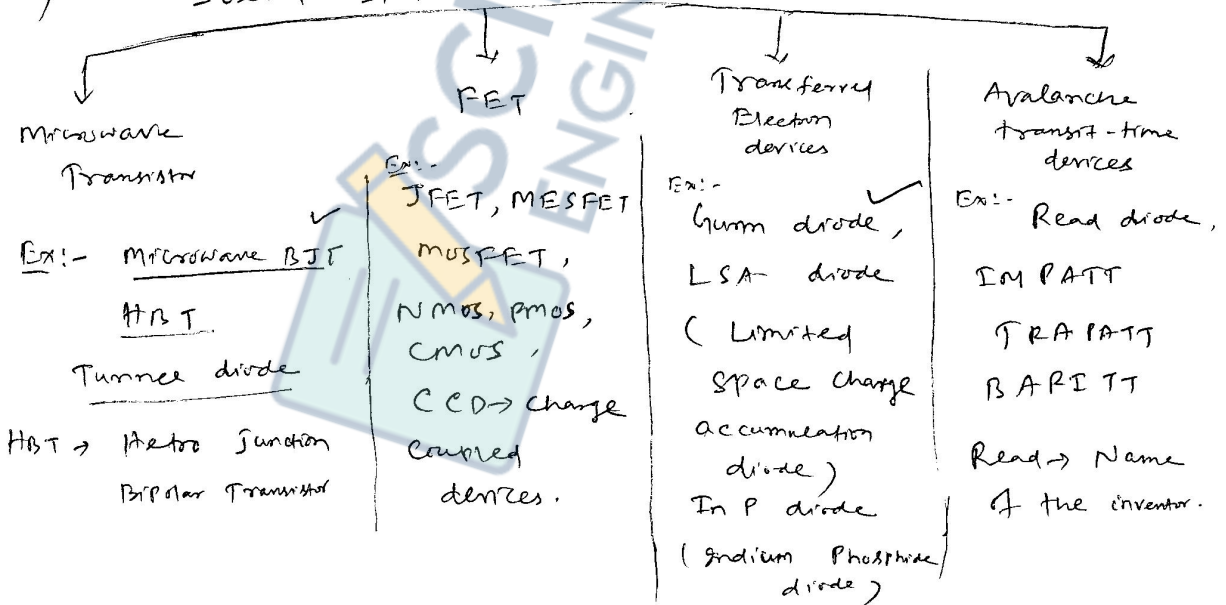 Microwave
Transistor
Ex:- Microwave BJT
HBT
Tunnel diode
HBT → Hetro Junction
Bipolar Transistor
FET
Ex:-
JFET, MESFET
MOSFET,
NMOS, PMOS,
CMOS,
CCD → Charge
Coupled
devices.
Transferred
Electron
devices
Ex:-
Gunn diode,
LSA diode
( Limited
Space Charge
accumulation
diode)
In P diode
( Indium Phosphide
diode)
Avalanche
transit-time
devices
Ex:- Read diode,
IMPATT
TRAPATT
BARITT
Read → Name
of the inventor.
ENGIN